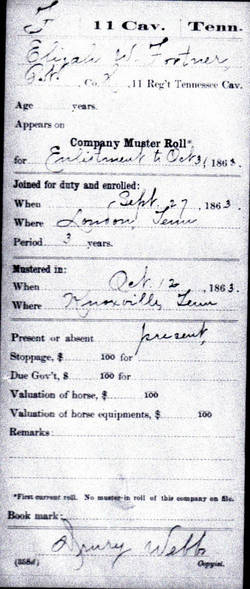 F 11 Cav. Tenn.
Elijah W. Fortner
Co. , 11 Reg't Tennessee Cav.
Age years.
Appears on
Company Muster Roll*
for Enlistment to Oct 31, 1863.
Joined for duty and enrolled:
When Sept. 27, 1863.
Where London, Tenn
Period 3 years.
Mustered in:
When Oct. 12, 1863.
Where Knoxville, Tenn
Present or absent present
Stoppage, $ 100 for
Due Gov't, $ 100 for
Valuation of horse, $ 100
Valuation of horse equipments, $ 100
Remarks:
*First current roll. No muster-in roll of this company on file.
Book mark:
Drury Webb
(358d) Copyist.